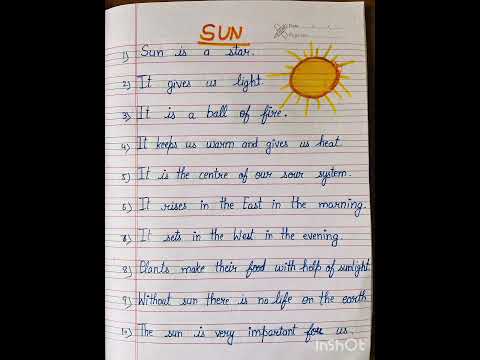 SUN
Date
1) Sun is a star.
2) It gives us light.
3) It is a ball of fire.
4) It keeps us warm and gives us heat.
5) It is the centre of our sour system.
6) It rises in the East in the marning.
8) It sets in the West in the evening.
8) Plants make their food with help of sunlight
9) Without sun there is no life on the earth
10) The sun is very important for us.
InShOt